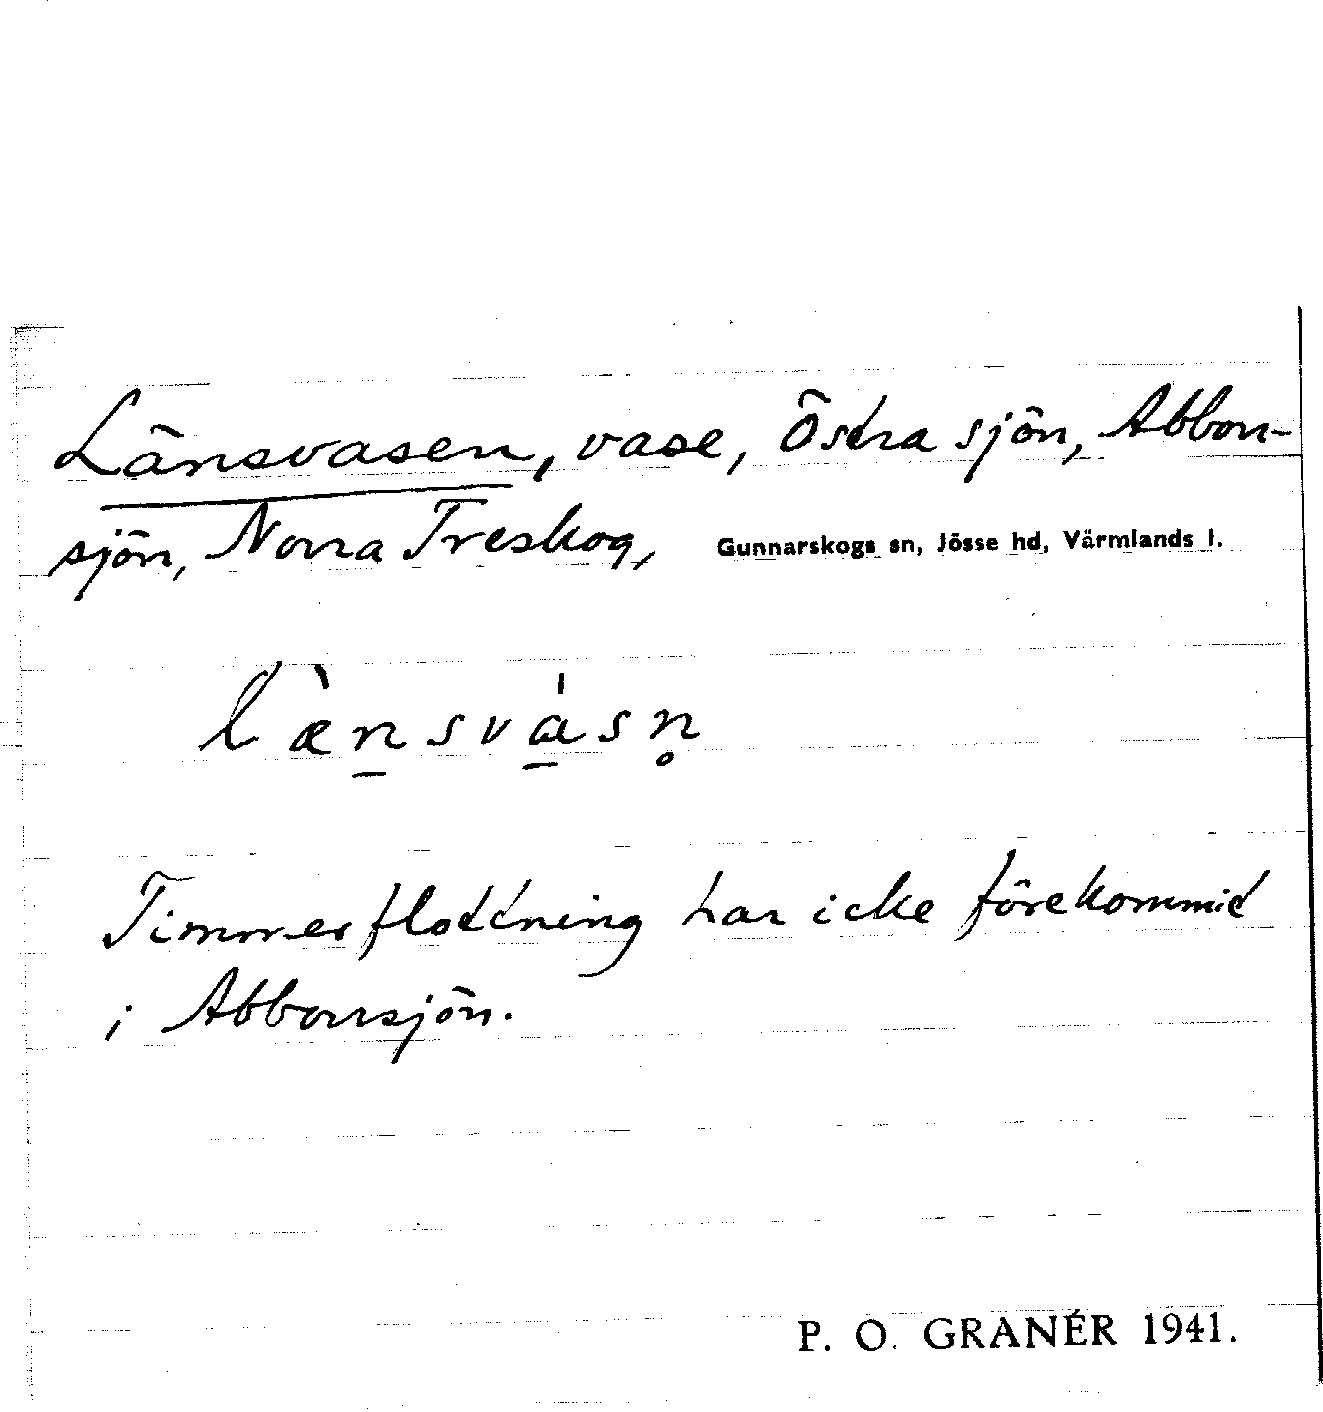 Länsvasen, vase, Östra sjön, Abborr-
sjön, Norra Treskog, Gunnarskogs sn, Jösse hd, Värmlands l.
læ̀n̠svá̠sn̥
Timmerflottning har icke förekommit
i Abborrsjön.
P. O. GRANÉR 1941.